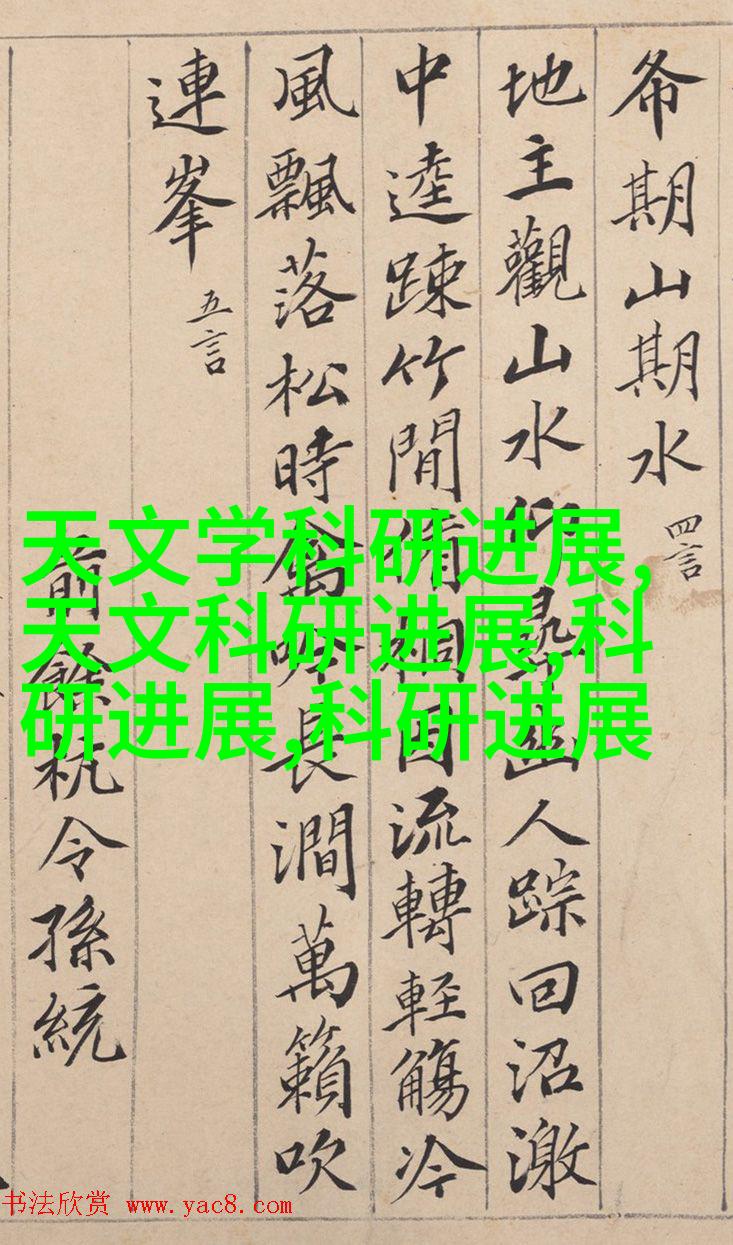 希期山期水 四言
地主觀山水仰尋幽人踪回沼激
中逵踈竹間脩桐因流轉軽觴冷
風飄落松時禽吟長澗萬籟吹
連峯 五言
前餘杭令孫統
天文学科研进展,
天文科研进展,科
研进展,科研进展
书法欣赏 www.yac8.com